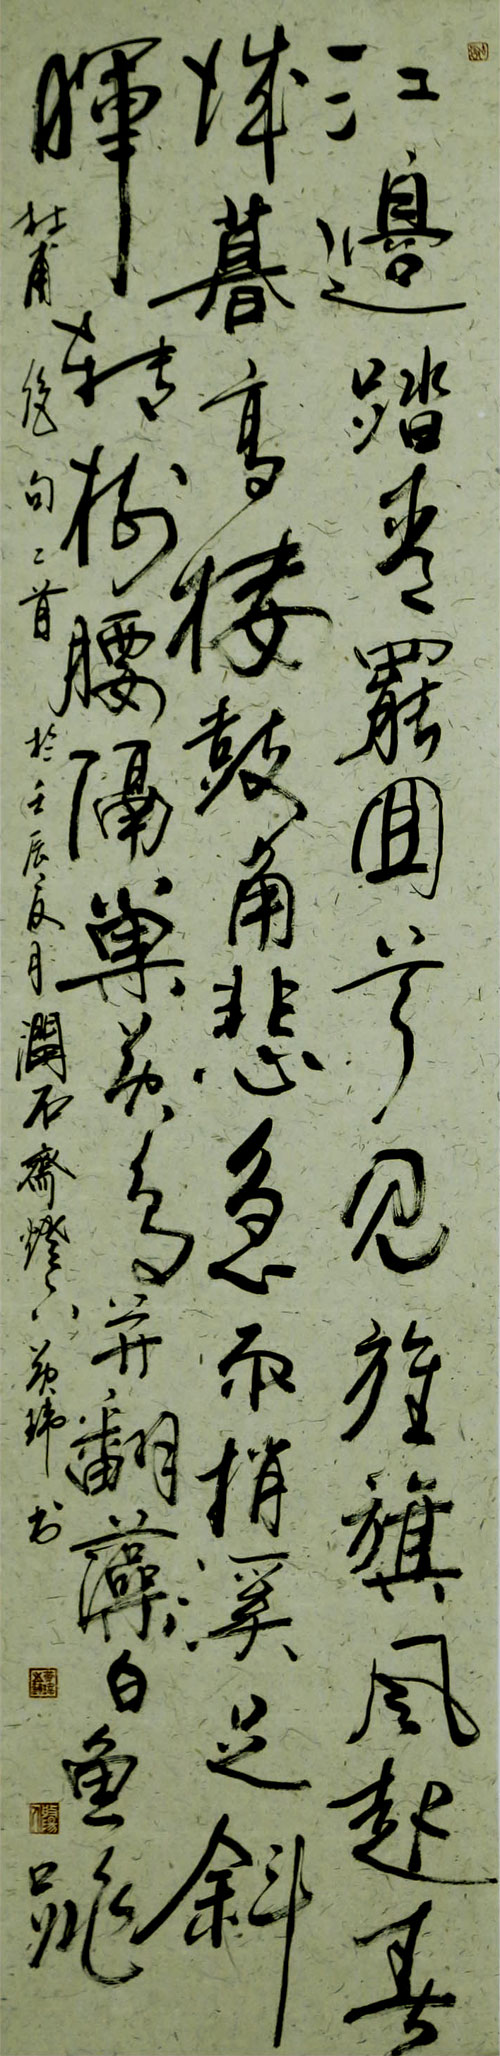 江邊踏青罷回首見旌旗風起春
城暮高樓鼓角悲急雨捎溪足斜
暉轉樹腰隔巢黃鳥并翻藻白魚跳
杜甫絕句二首於壬辰夏月潤石齋燈下黃瑋書